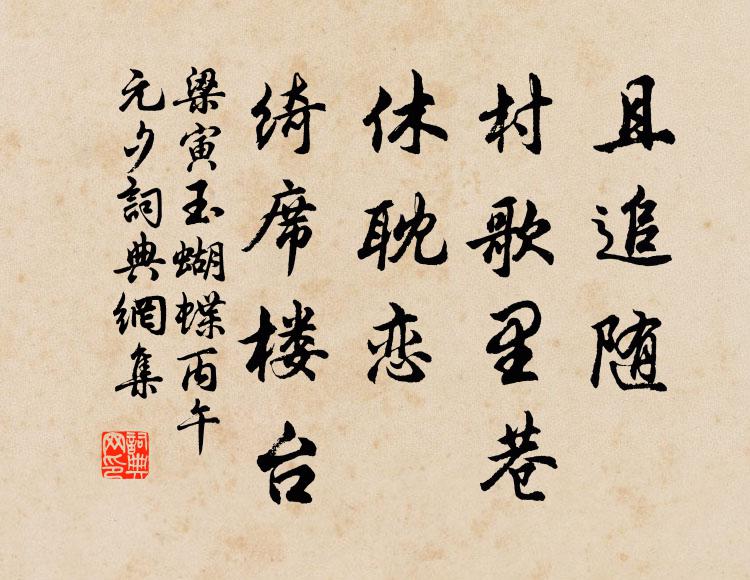 且追随
村歌里巷
休耽恋
绮席楼台
梁寅玉蝴蝶丙午
元夕詞典網集
詞典网印